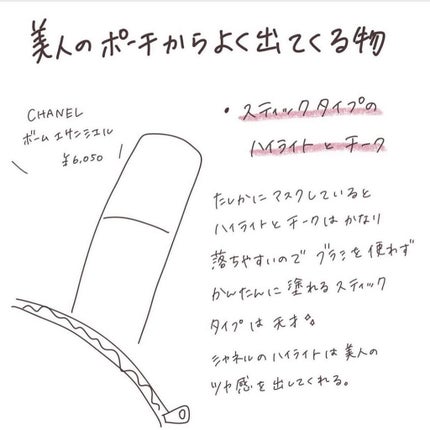 美人のポーチからよく出てくる物
CHANEL
ボーム エサンシエル
¥6,050
・スティックタイプの
ハイライトとチーク
たしかにマスクしていると
ハイライトとチークはかなり
落ちやすいのでブラシを使わず
かんたんに塗れるスティック
タイプは天才。
シャネルのハイライトは美人の
ツヤ感を出してくれる。